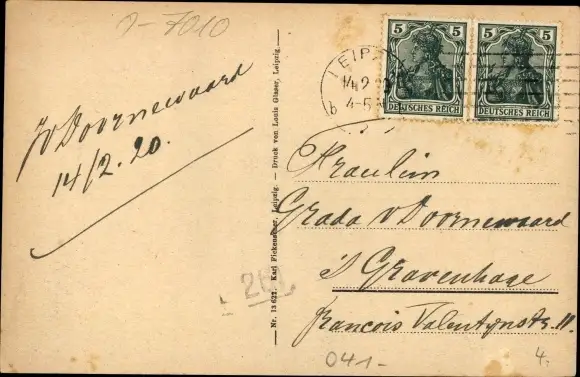 J-7010
Jv Doornewaard
14/2.20.
Nr. 13 627. Karl Fickenscher, Leipzig. — Druck von Louis Glaser, Leipzig.
5 5
DEUTSCHES REICH
5 5
DEUTSCHES REICH
LEIPZ
14.2.20
4-5
b
Fraulein
Grada v Doornewaard
's Gravenhage
Francois Valentynstr. 11
041-
4.